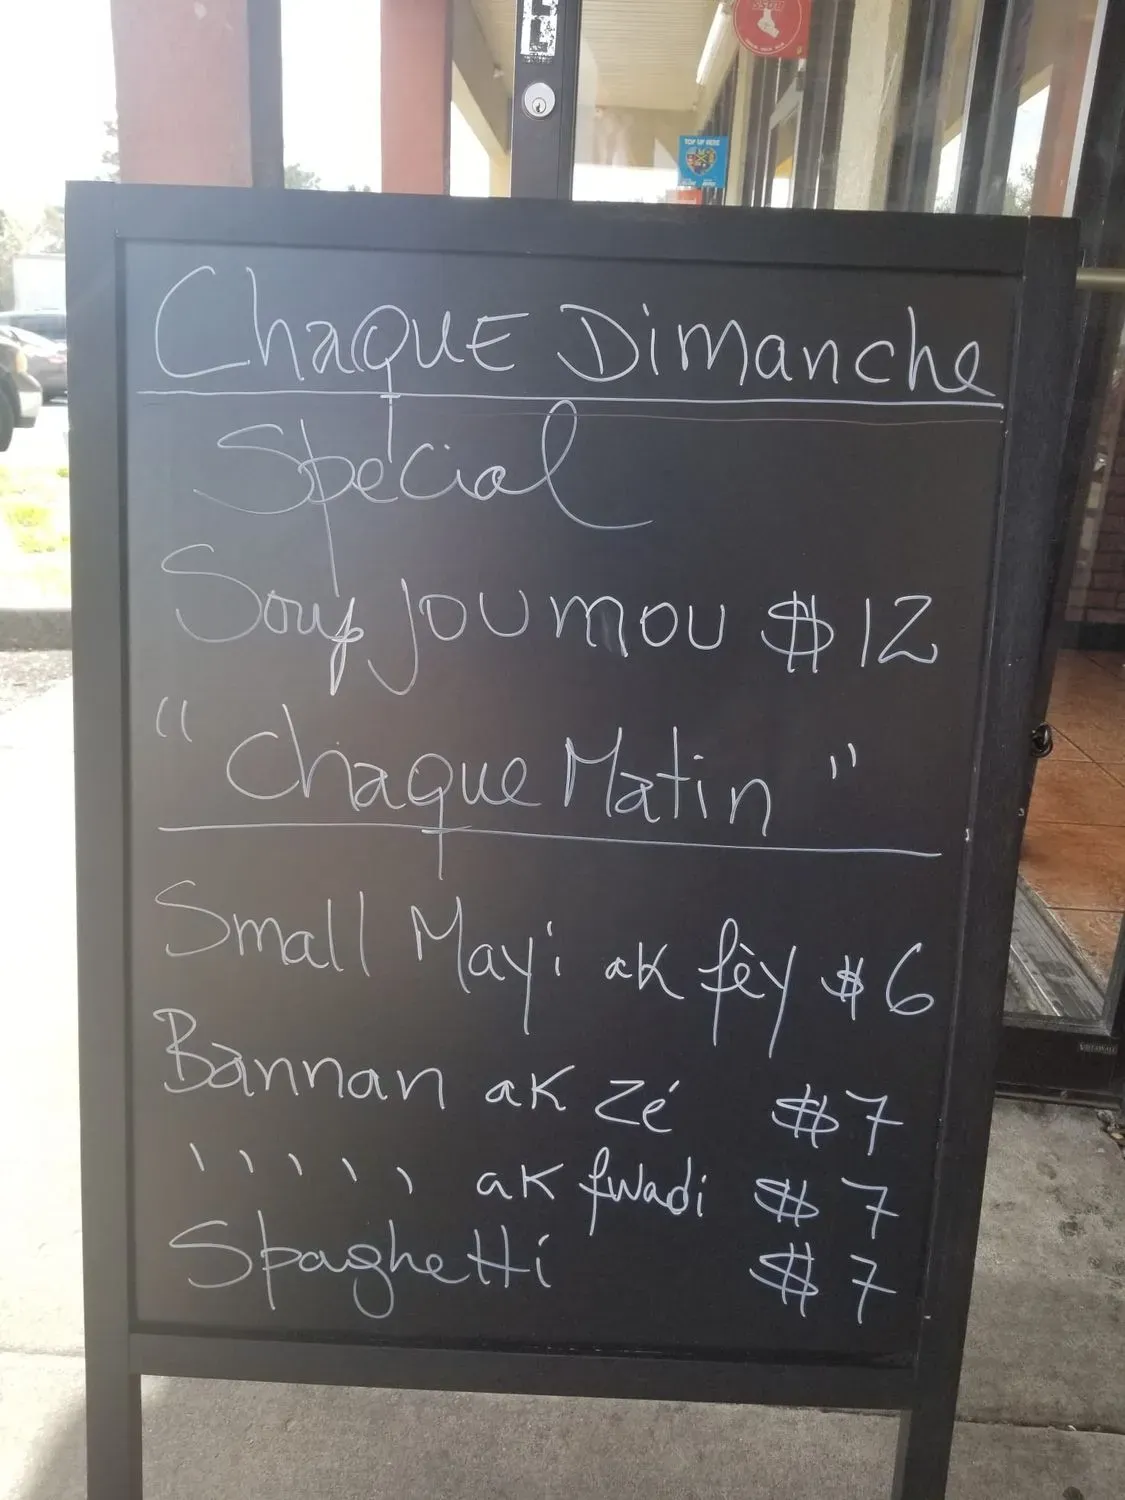 TOP UP HERE
Chaque Dimanche
Spécial
Soup Joumou $12
"Chaque Matin"
Small Mayi ak fèy $6
Bannan ak zé $7
'''''  ak fwadi $7
Spaghetti $7